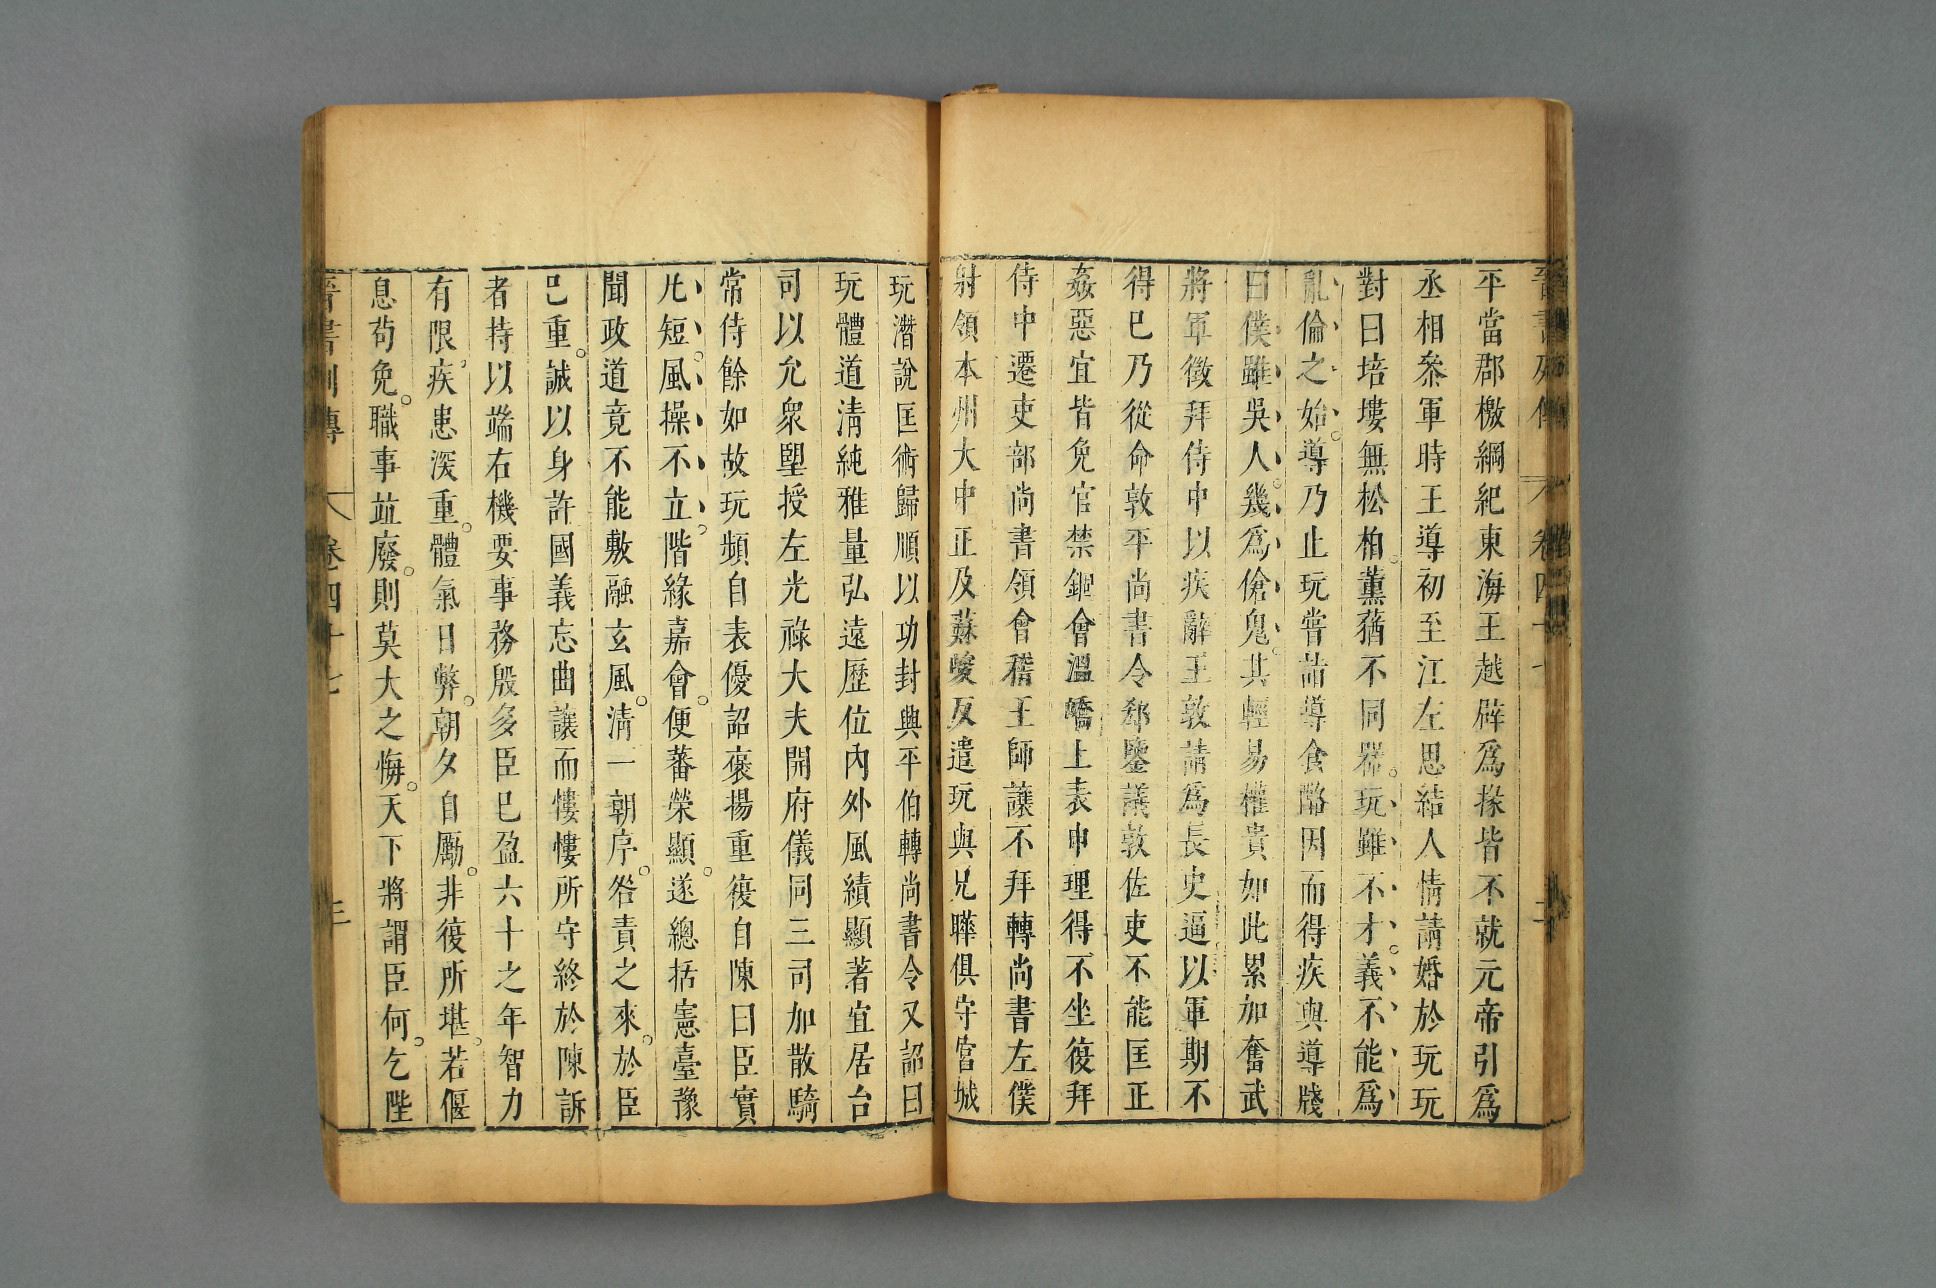 平當郡檄綱紀東海王越辟爲掾皆不就元帝引爲
丞相參軍時王導初至江左思結人情請婚於玩玩
對曰培塿無松柏薰蕕不同器玩雖不才義不能爲
亂倫之始導乃止玩嘗詣導食酪因而得疾與導牋
曰僕雖吳人幾爲傖鬼其輕易權貴如此累加奮武
將軍徵拜侍中以疾辭王敦請爲長史逼以軍期不
得已乃從命敦平尚書令郄鑒議敦佐吏不能匡正
姦惡宜皆免官禁錮會溫嶠上表申理得不坐復拜
侍中遷吏部尚書領會稽王師讓不拜轉尚書左僕
射領本州大中正及蘇峻反遣玩與兄曄俱守宮城
玩潛說匡術歸順以功封興平伯轉尚書令又詔曰
玩體道淸純雅量弘遠歷位內外風績顯著宜居台
司以允衆望授左光祿大夫開府儀同三司加散騎
常侍餘如故玩頻自表優詔褒揚重復自陳曰臣實
凡短風操不立階緣嘉會便蕃榮顯遂總括憲臺豫
聞政道竟不能敷融玄風淸一朝序咎責之來於臣
已重誠以身許國義忘曲讓而慺慺所守終於陳訴
者持以端右機要事務殷多臣已盈六十之年智力
有限疾患深重體氣日弊朝夕自勵非復所堪若偃
息苟免職事並廢則莫大之悔天下將謂臣何乞陛
晉書列傳 卷四十七 三